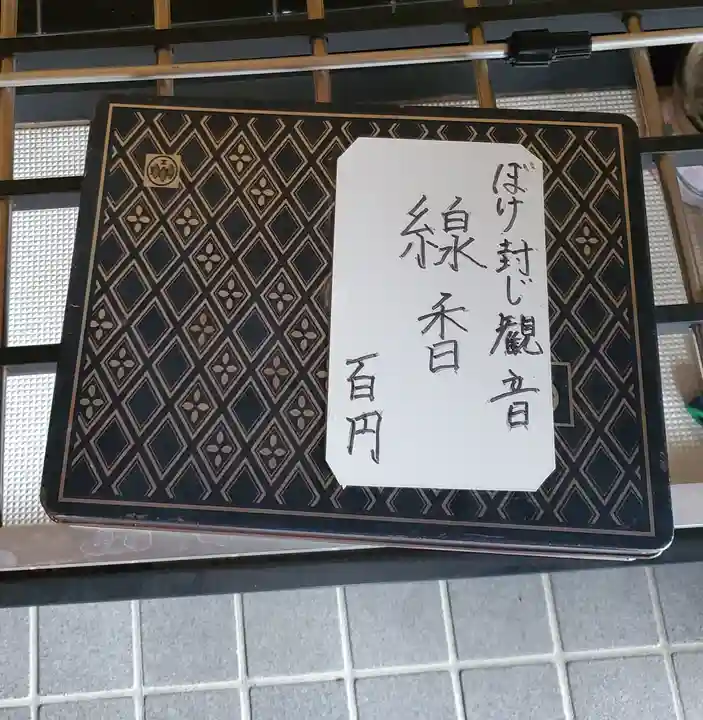 ぼけ封じ観音
線香
百円